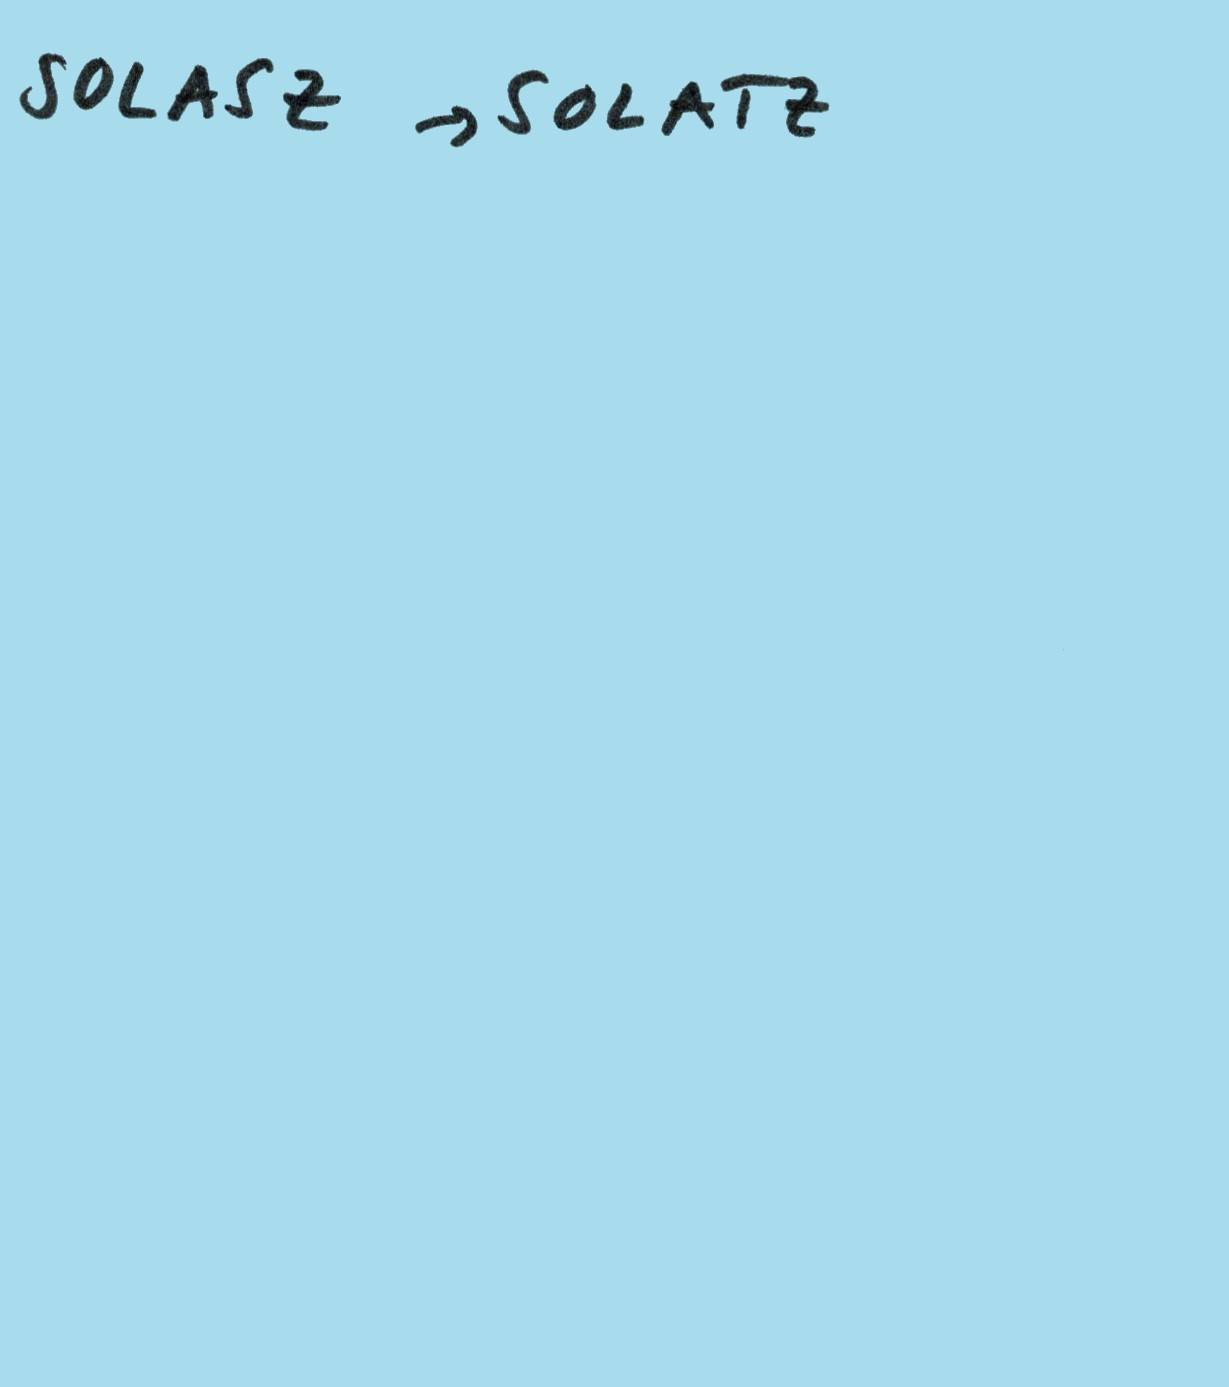 SOLASZ → SOLATZ